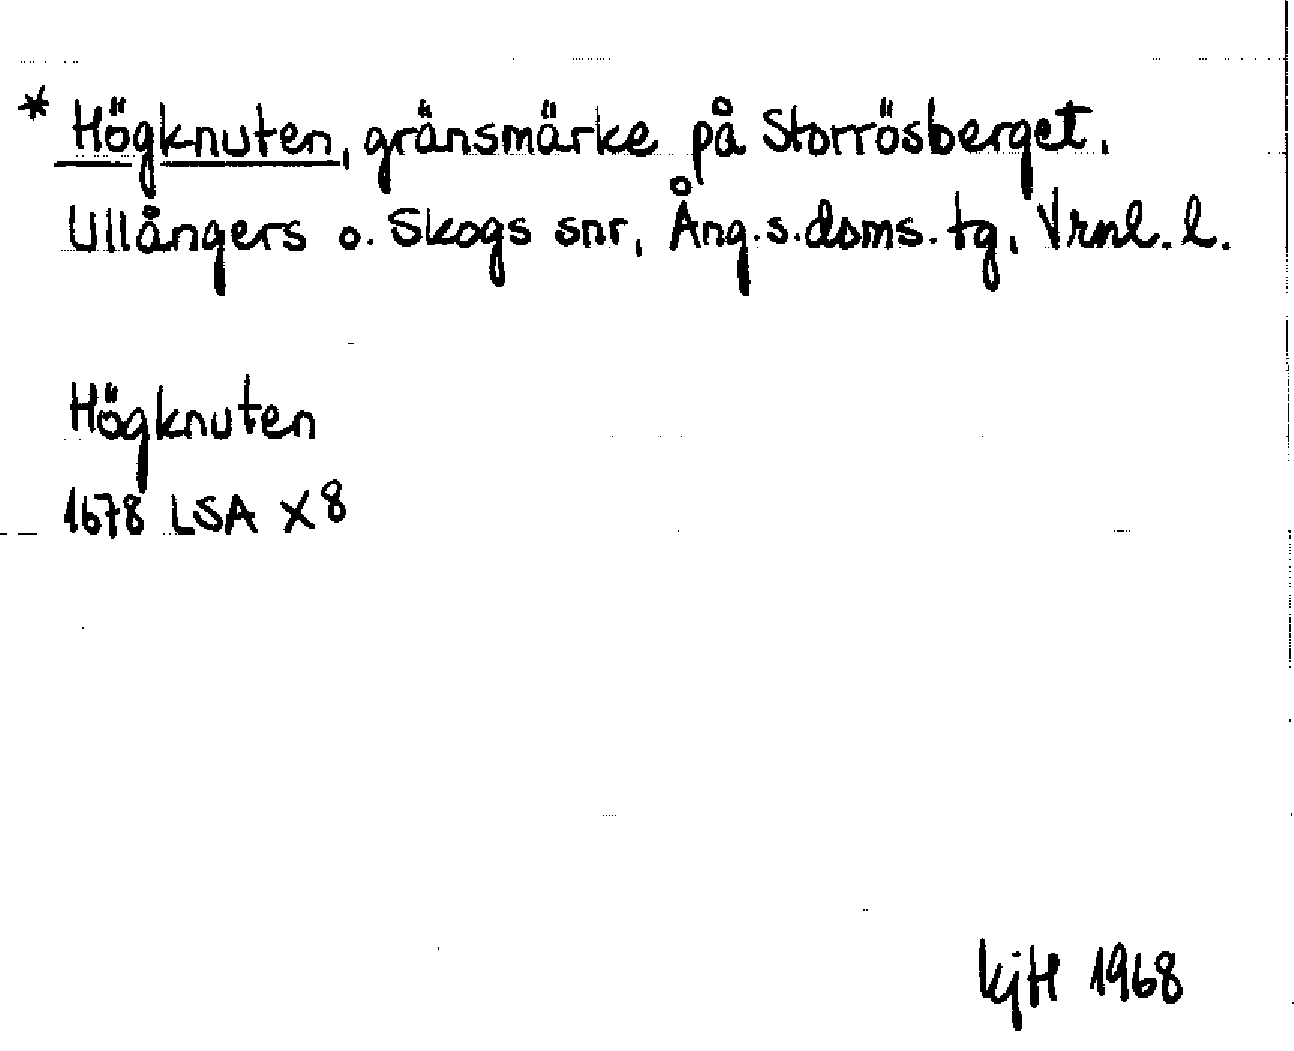 * Högknuten, gränsmärke på Storrösberget.
Ullångers o. Skogs snr, Ång.s.doms.tg, Vrnl. l.
Högknuten
1678 LSA X8
kjH 1968